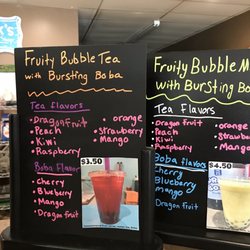 Fruity Bubble Tea
with Bursting Boba
Tea flavors
• Dragon fruit
• Peach
• Kiwi
• Raspberry
• orange
• strawberry
• Mango
Boba Flavor
• Cherry
• Blueberry
• Mango
• Dragon fruit
$3.50
Fruity Bubble M
with Bursting Bo
Tea Flavors
Dragon fruit
Peach
Kiwi
Raspberry
• orange
• Strawb
• Mango
Boba flavors
Cherry
Blueberry
mango
Dragon fruit